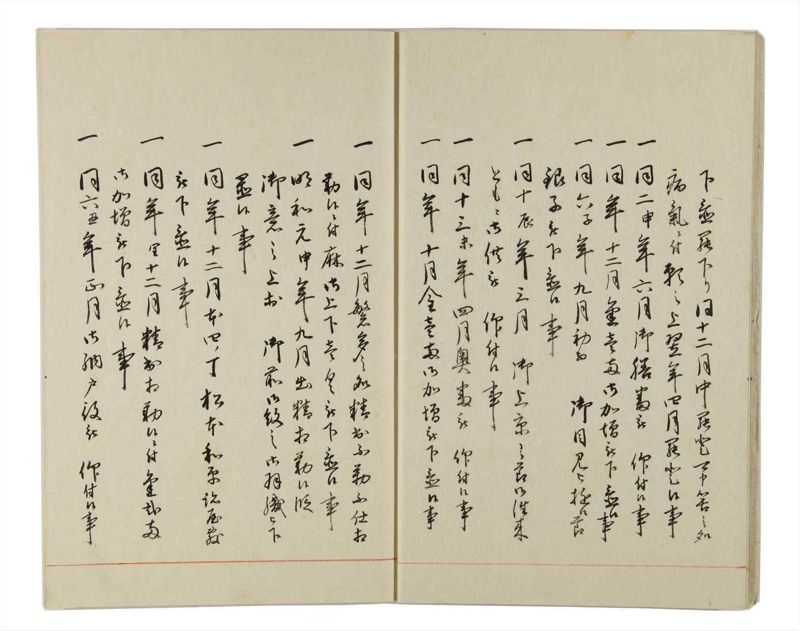 下置罷下り同十二月中罷登可申筈之処
病氣ニ付願之上翌年四月罷登候事
一同二申年六月御膳番被 仰付候事
一同年十二月金壱両御加増被下置候事
一同六子年九月初而 御目見被 候節
銀子被下置候事
一同十辰年三月 御上京之節御往来
とも御供被 仰付候事
一同十三未年四月奥番被 仰付候事
一同年十月金壱両御加増被下置候事
一同年十二月繁多之処精出不勤不仕相
勤候ニ付麻御上下壱具被下置候事
一明和元申年九月出精相勤候段
御意之上於 御前御紋之御 被下
置候事
一同年十二月本四丁 松本和平
被下置候事
一同年閏十二月精出相勤候ニ付金弐両
御加増被下置候事
一同六丑年正月御納戸役被 仰付候事